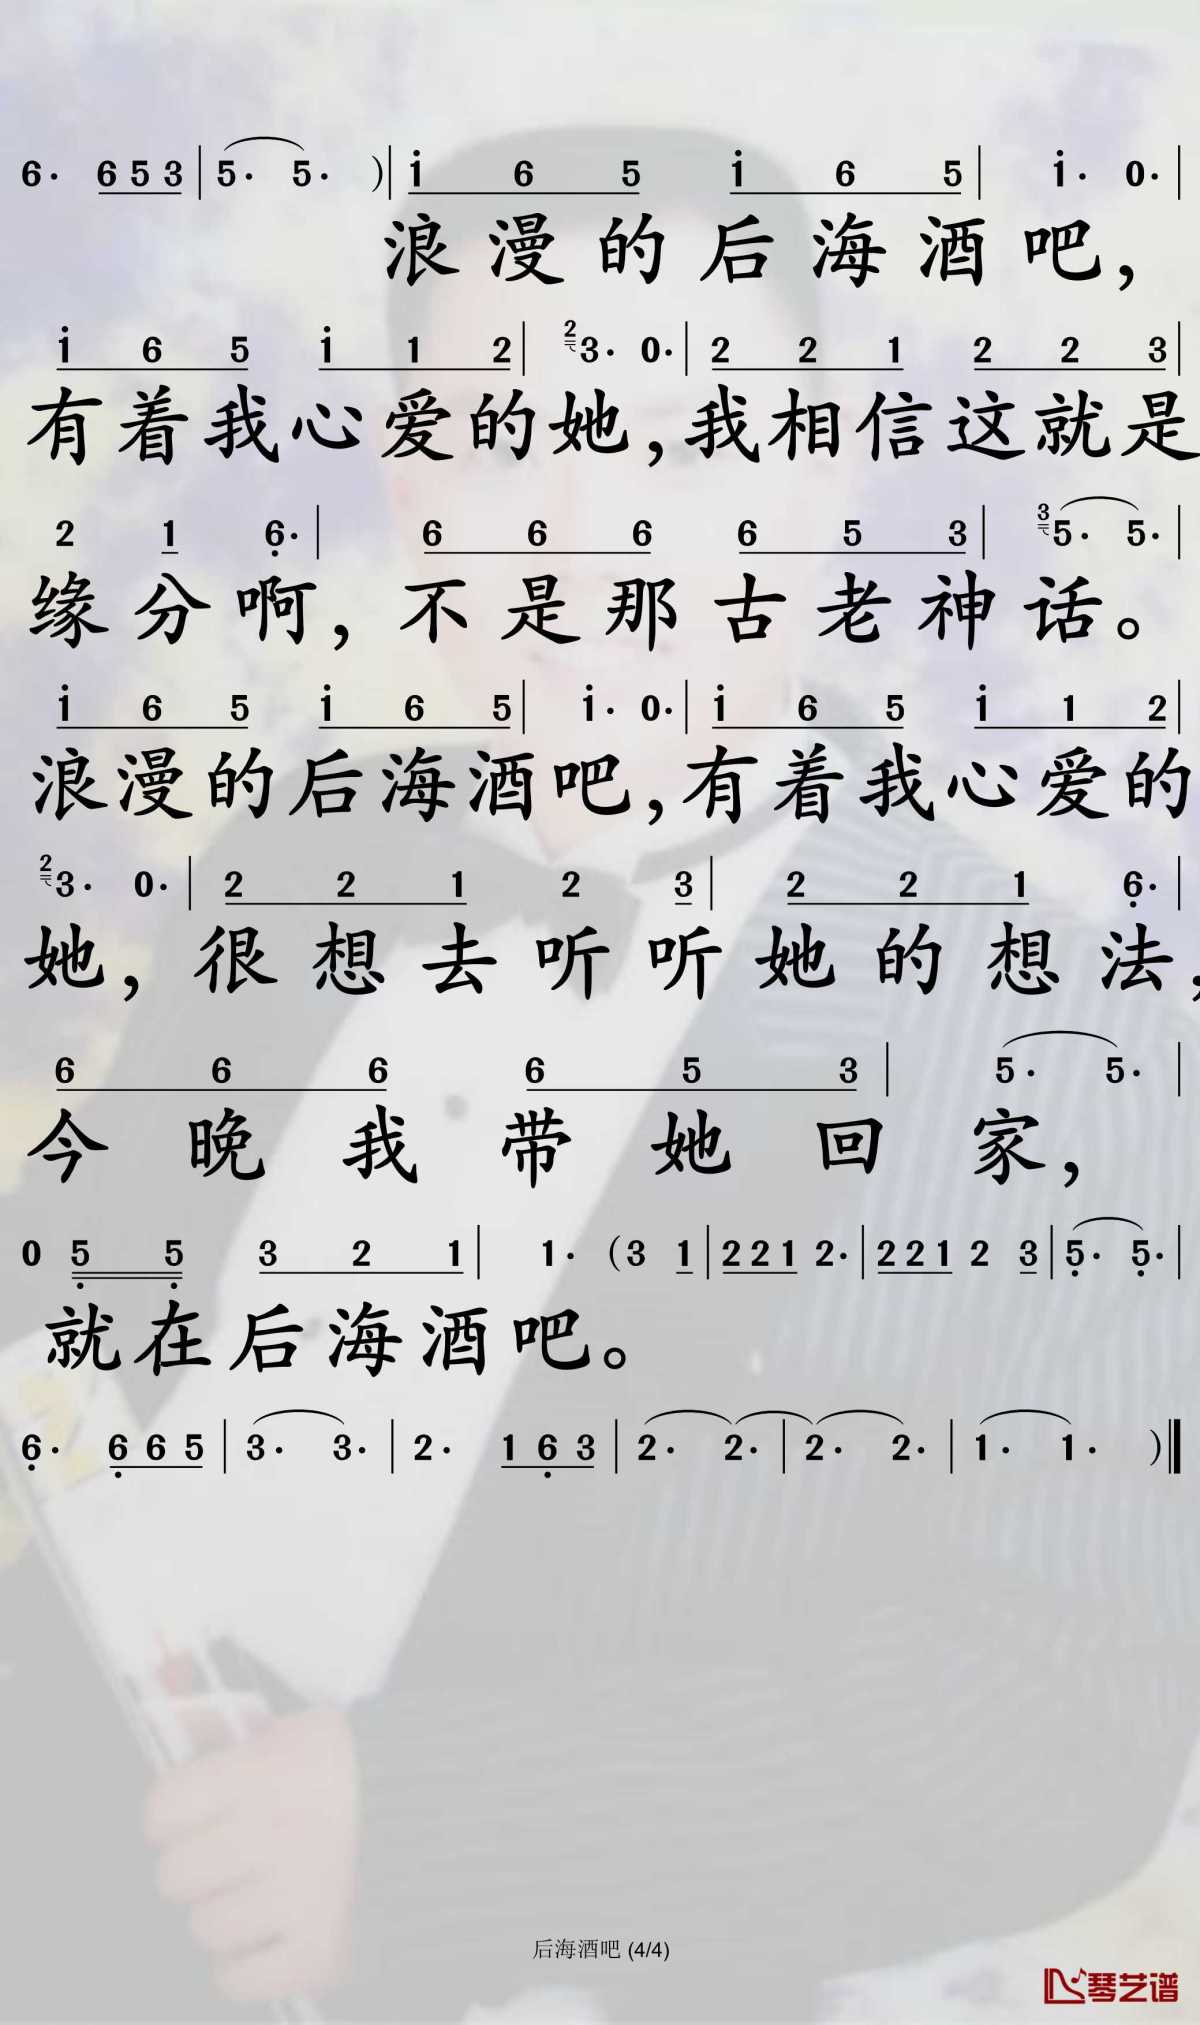 6· 6 5 3 | 5· 5· ) | i 6 5 i 6 5 | i· 0· |
浪漫的后海酒吧，
i 6 5 i 1 2 | 2 3· 0· | 2 2 1 2 2 3
有着我心爱的她，我相信这就是
2 1 6· | 6 6 6 6 5 3 | 3 5· 5· |
缘分啊，不是那古老神话。
i 6 5 i 6 5 | i· 0· | i 6 5 i 1 2 |
浪漫的后海酒吧，有着我心爱的
2 3· 0· | 2 2 1 2 3 | 2 2 1 6· |
她，很想去听听她的想法，
6 6 6 6 5 3 | 5· 5· |
今晚我带她回家，
0 5 5 3 2 1 | 1· (3 1 | 2 2 1 2· | 2 2 1 2 3 | 5· 5· |
就在后海酒吧。
6· 6 6 5 | 3· 3· | 2· 1 6 3 | 2· 2· | 2· 2· | 1· 1· ) ‖
后海酒吧 (4/4)
琴艺谱